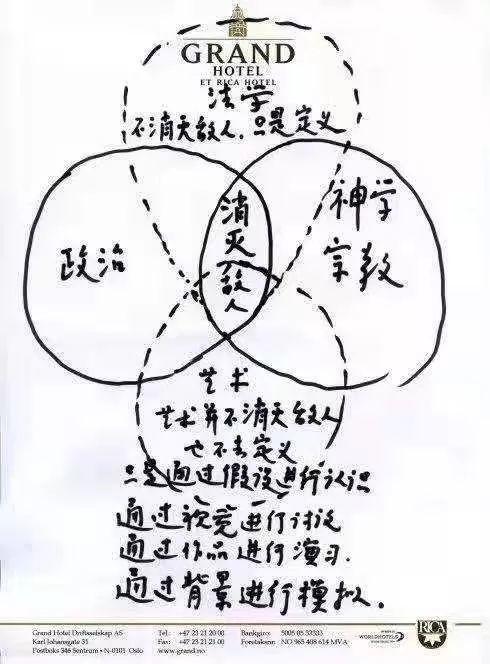 GRAND
HOTEL
ET RICA HOTEL
法学
不消灭敌人，只是定义
政治
消灭敌人
神学
宗教
艺术
艺术并不消灭敌人
也不去定义
只是通过假设进行认识
通过视觉进行讨论
通过作品进行演习．
通过背景进行模拟．
Grand Hotel Driftsselskap AS
Karl Johansgate 31
Postboks 346 Sentrum • N-0101 Oslo
Tel: +47 23 21 20 00
Fax: +47 23 21 21 00
www.grand.no
Bankgiro: 5005 05 53533
Foretaksnr: NO 965 488 614 MVA
WORLDHOTELS
RICA